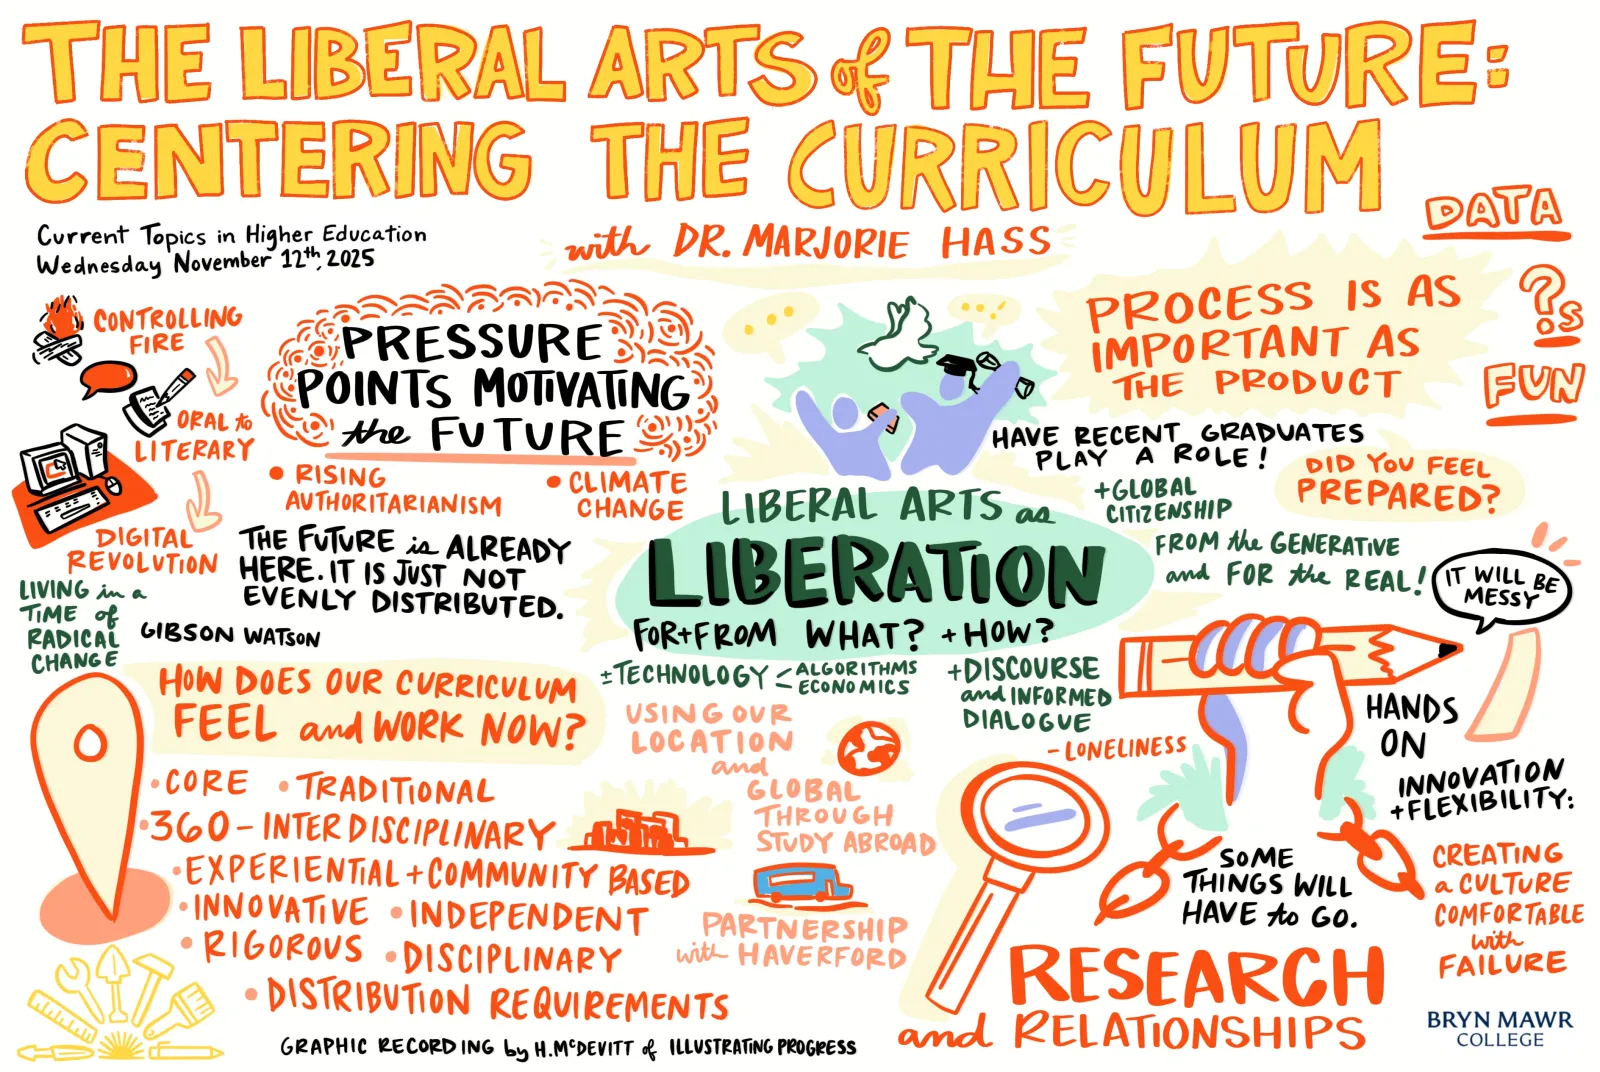 THE LIBERAL ARTS of THE FUTURE:
CENTERING THE CURRICULUM
Current Topics in Higher Education
Wednesday November 12th, 2025
with DR. MARJORIE HASS
DATA
?s
FUN
CONTROLLING
FIRE
ORAL to
LITERARY
DIGITAL
REVOLUTION
LIVING in a
TIME of
RADICAL
CHANGE
PRESSURE
POINTS MOTIVATING
the FUTURE
• RISING
AUTHORITARIANISM
• CLIMATE
CHANGE
THE FUTURE is ALREADY
HERE. IT IS JUST NOT
EVENLY DISTRIBUTED.
GIBSON WATSON
PROCESS IS AS
IMPORTANT AS
THE PRODUCT
HAVE RECENT GRADUATES
PLAY A ROLE!
DID YOU FEEL
PREPARED?
+GLOBAL
CITIZENSHIP
FROM the GENERATIVE
and FOR the REAL!
IT WILL BE
MESSY
LIBERAL ARTS as
LIBERATION
FOR+FROM WHAT? + HOW?
±TECHNOLOGY
ALGORITHMS
ECONOMICS
+DISCOURSE
and INFORMED
DIALOGUE
-LONELINESS
HOW DOES OUR CURRICULUM
FEEL and WORK NOW?
• CORE
• TRADITIONAL
• 360-INTERDISCIPLINARY
• EXPERIENTIAL + COMMUNITY BASED
• INNOVATIVE
• INDEPENDENT
• RIGOROUS
• DISCIPLINARY
• DISTRIBUTION REQUIREMENTS
USING OUR
LOCATION
and
GLOBAL
THROUGH
STUDY ABROAD
PARTNERSHIP
with HAVERFORD
HANDS
ON
INNOVATION
+FLEXIBILITY:
CREATING
a CULTURE
COMFORTABLE
with
FAILURE
SOME
THINGS WILL
HAVE to GO.
RESEARCH
and RELATIONSHIPS
GRAPHIC RECORDING by H.McDEVITT of ILLUSTRATING PROGRESS
BRYN MAWR
COLLEGE